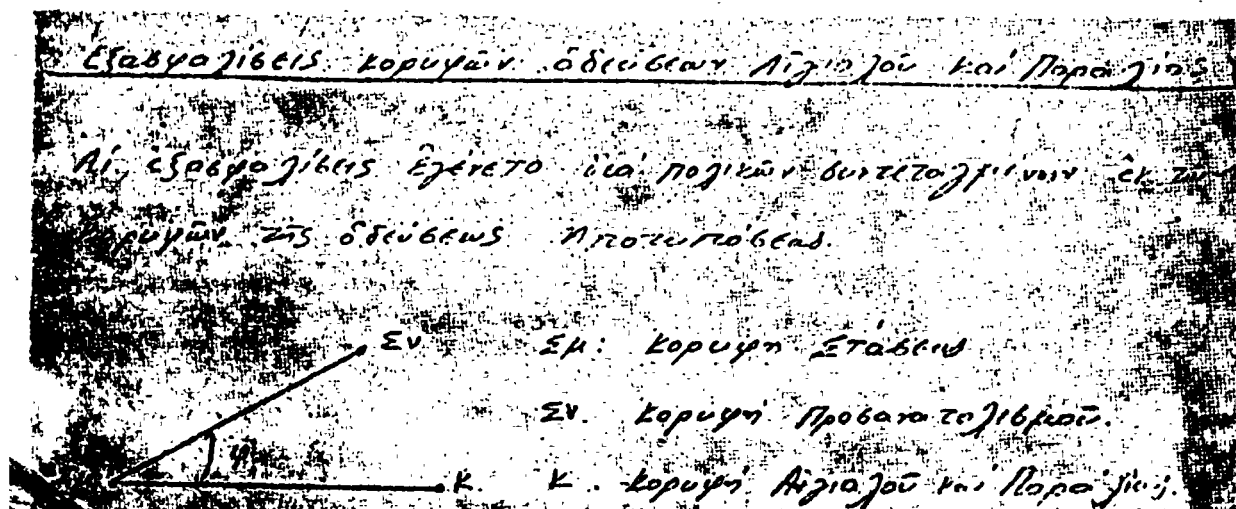 Εξασφαλίσεις κορυφών ὁδεύσεων Αἰγιαλοῦ καί Παραλίας
Αἱ ἐξασφαλίσεις ἐγένετο διά πολικῶν συντεταγμένων ἐκ τῶν
κορυφῶν τῆς ὁδεύσεως Αποτυπώσεως.
Σν Σμ: Κορυφή Στάσεως
Σν. Κορυφή Προσανατολισμοῦ.
φ
Κ. Κ. Κορυφή Αἰγιαλοῦ καί Παραλίας.